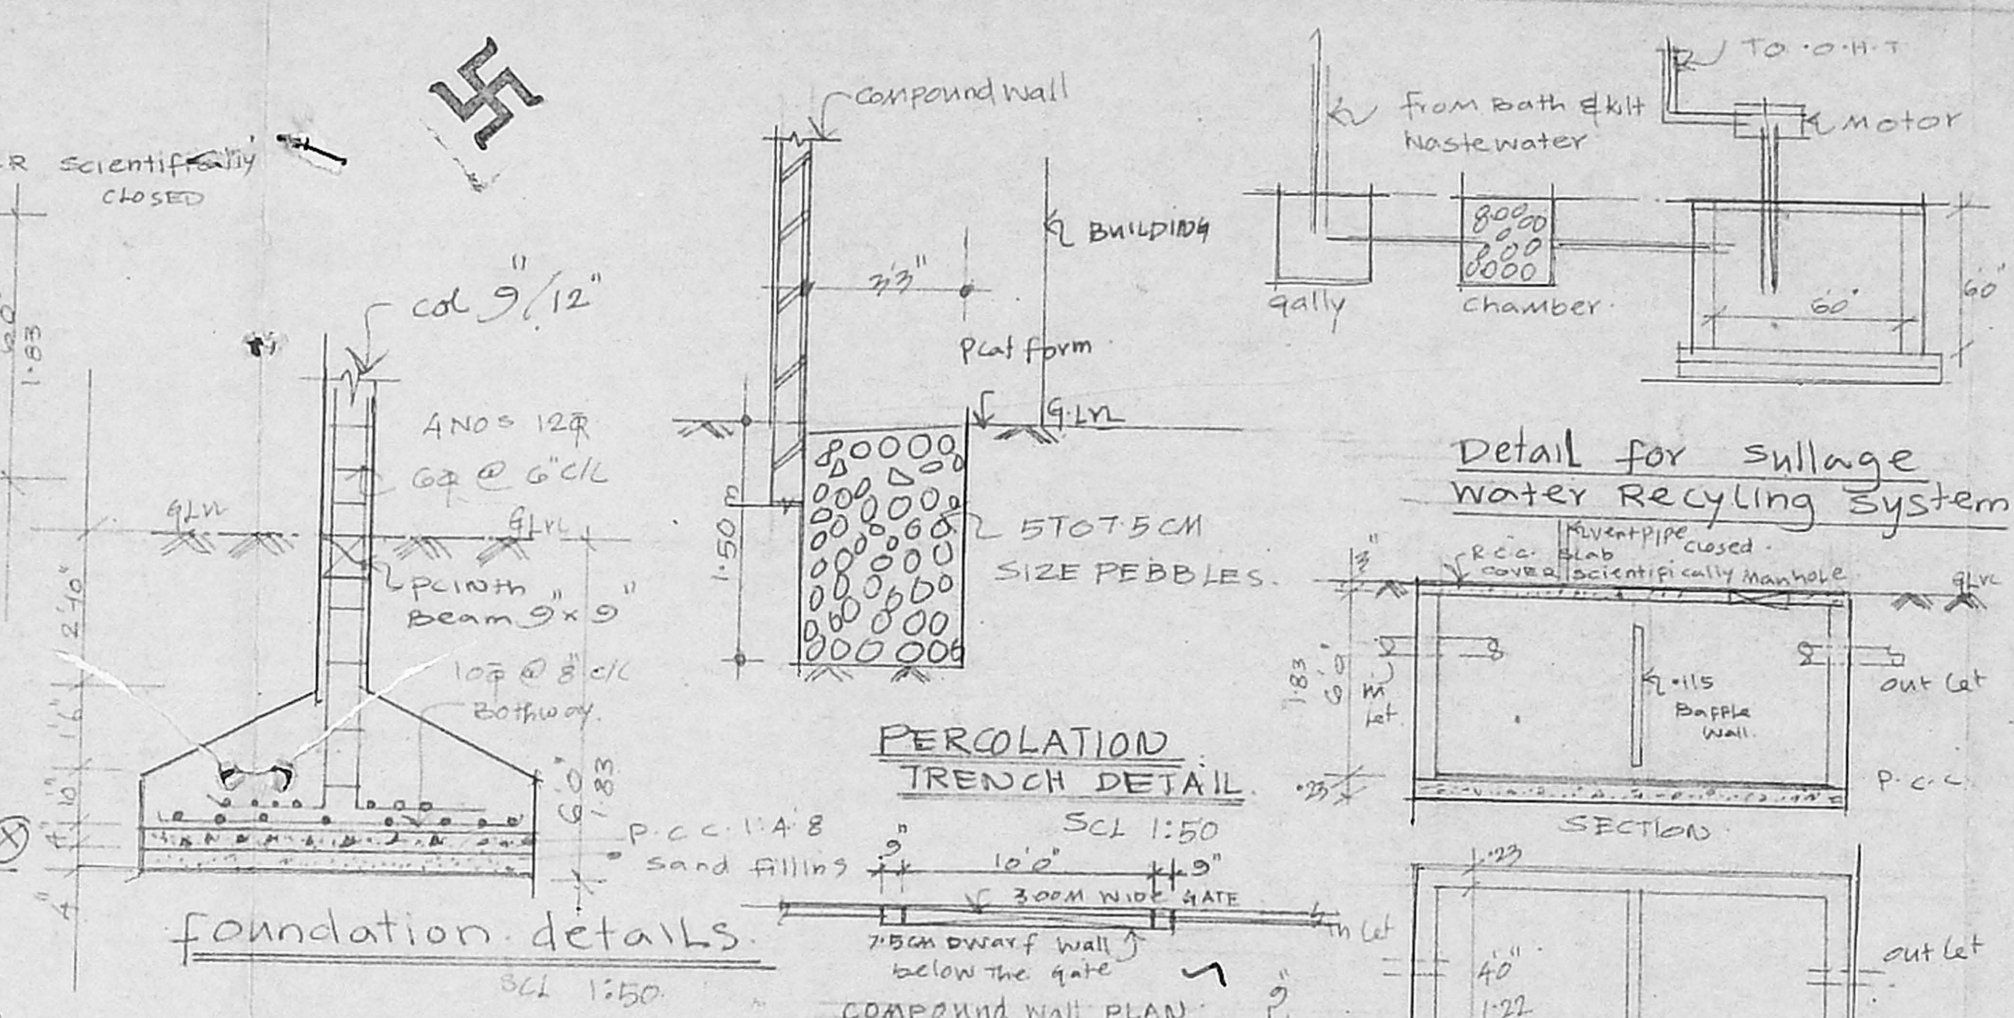 R Scientifically
CLOSED
1.83
col 9"/12"
4 NOS 12φ
6φ @ 6" c/c
GLVL
GLVL
PLINTH
Beam 9" x 9"
10φ @ 8" c/c
Bothway.
2'10"
1'6"
10"
4"
4"
6'0"
1.83
P.C.C. 1:4:8
Sand filling
foundation details.
SCL 1:50
compound wall
BUILDING
3'3"
Plat form
G.LVL
1.50 m
5 TO 7.5 CM
SIZE PEBBLES.
PERCOLATION
TRENCH DETAIL
SCL 1:50
9"
10'0"
9"
3.00M WIDE GATE
7.5cm Dwarf wall
below the gate
compound wall PLAN
9"
TO O.H.T
from Bath & kit
Wastewater
MOTOR
gally
chamber
60"
60"
Detail for Sullage
Water Recyling System
Ventpipe
closed
R.C.C. Slab
cover
scientifically Manhole
GLVL
3"
1.83
6'0"
In
let
.115
Baffle
Wall.
out let
.23
P.C.C.
SECTION
.23
In let
4'0"
1.22
out let